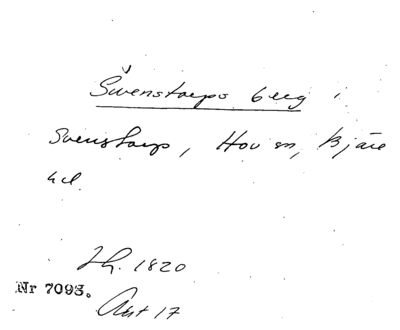 Svenstorps berg i
Svenstorp, Hov sn, Bjäre
hd.
Jh. 1820
Nr 7093.
Akt 17